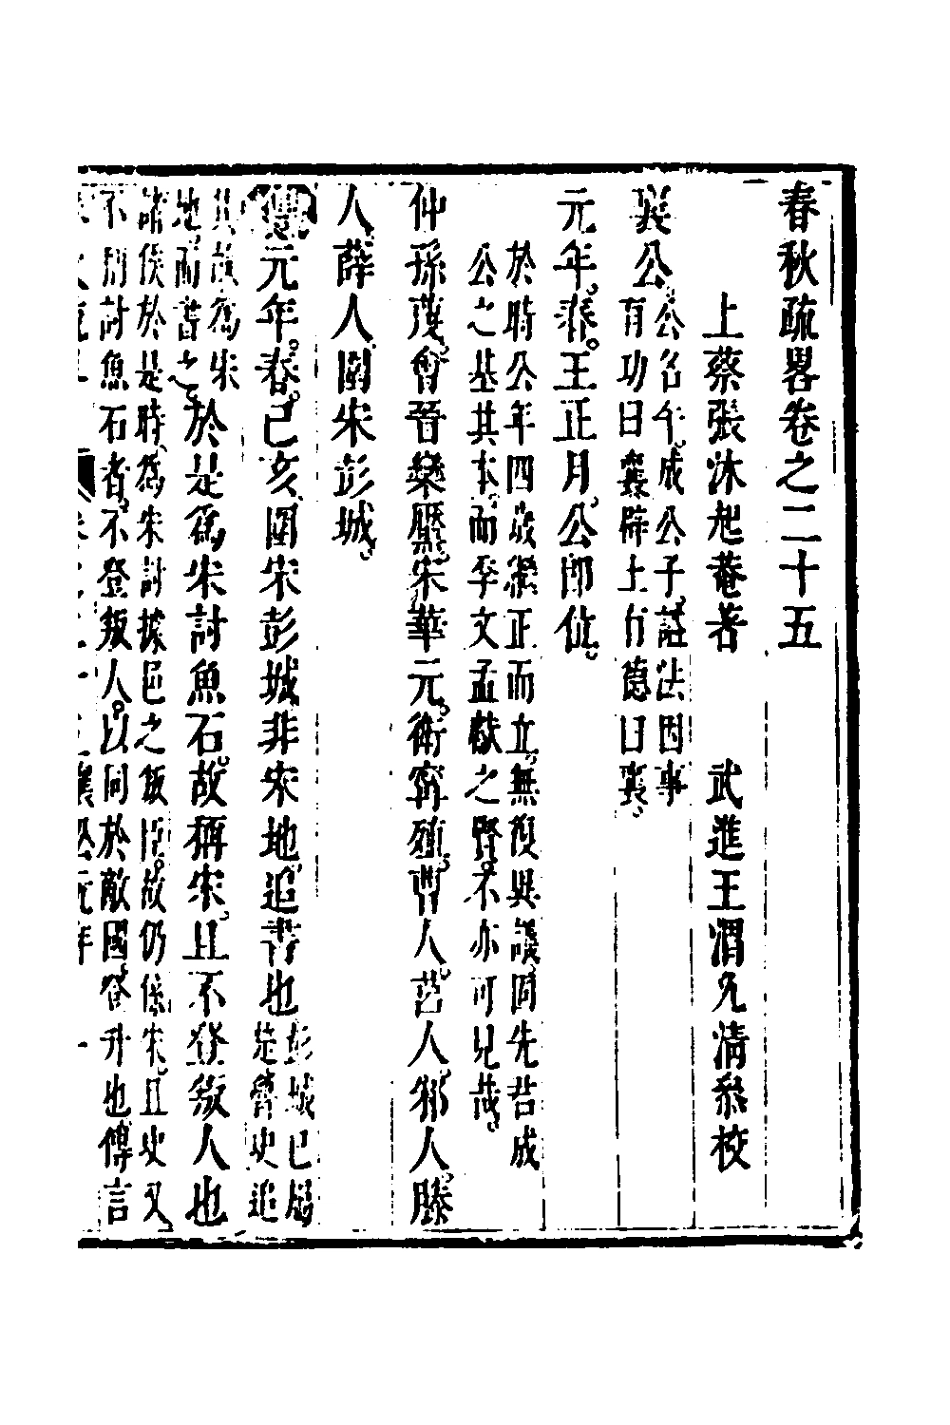 春秋疏畧卷之二十五
上蔡張沐起菴著　武進王渭允清叅校
襄公公名午成公子諡法因事
有功曰襄辟土有德曰襄
元年春王正月公即位
於時公年四歲繼正而立無復異議同先君成
公之基其本而季文孟獻之賢不亦可見哉
仲孫蔑會晉欒黶宋華元衛甯殖曹人莒人邾人滕
人薛人圍宋彭城
傳元年春己亥圍宋彭城非宋地追書也彭城已屬
楚魯史追
其故為宋
地而書之於是為宋討魚石故稱宋且不登叛人也
諸侯於是時為宋討據邑之叛臣故仍係宋且史又
不別討魚石者不登叛人以同於敵國登升也傳言